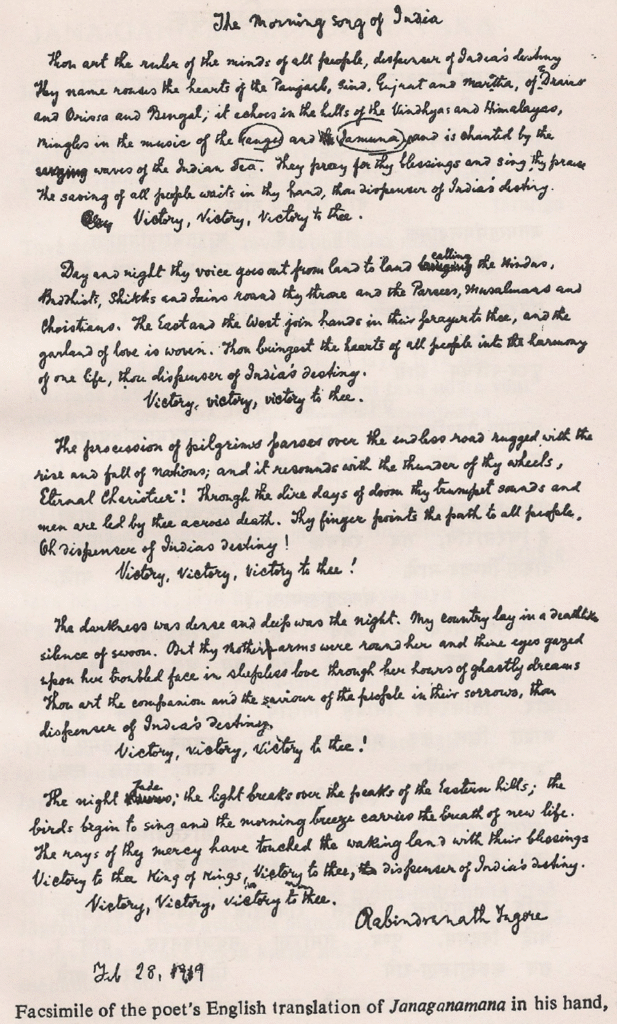 The Morning Song of India
Thou art the ruler of the minds of all people, dispenser of India's destiny
Thy name rouses the hearts of the Panjaub, Sind, Gujrat and Maratha, of Dravid
and Orissa and Bengal; it echoes in the hills of the Vindhyas and Himalayas,
mingles in the music of the Ganges and Jamuna and is chanted by the
waves of the Indian Sea. They pray for thy blessings and sing thy praise
The saving of all people waits in thy hand, thou dispenser of India's destiny.
Victory, Victory, Victory to thee.
Day and night thy voice goes out from land to land calling the Hindus,
Buddhists, Shikhs and Jains round thy throne and the Parsees, Musalmans and
Christians. The East and the West join hands in their prayer to thee, and the
garland of love is woven. Thou bringest the hearts of all people into the harmony
of one life, thou dispenser of India's destiny.
Victory, victory, victory to thee.
The procession of pilgrims passes over the endless road rugged with the
rise and fall of nations; and it resounds with the thunder of thy wheels,
Eternal Charioteer! Through the dire days of doom thy trumpet sounds and
men are led by thee across death. Thy finger points the path to all people,
Oh dispenser of Indias destiny!
Victory, Victory, Victory to thee!
The darkness was dense and deep was the night. My country lay in a deathlike
silence of swoon. But thy Mother arms were round her and thine eyes gazed
upon her troubled face in sleepless love through her hours of ghastly dreams
Thou art the companion and the saviour of the people in their sorrows, thou
dispenser of India's destiny,
Victory, victory, victory to thee!
The night fades; the light breaks over the peaks of the Eastern hills; the
birds begin to sing and the morning breeze carries the breath of new life.
The rays of thy mercy have touched the waking land with their blessings
Victory to thee King of Kings, Victory to thee, dispenser of India's destiny.
Victory, Victory, victory to thee.
Rabindranath Tagore
Feb 28, 1919
Facsimile of the poet's English translation of Janaganamana in his hand,